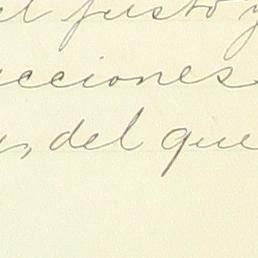 el justo y
cciones
, del que